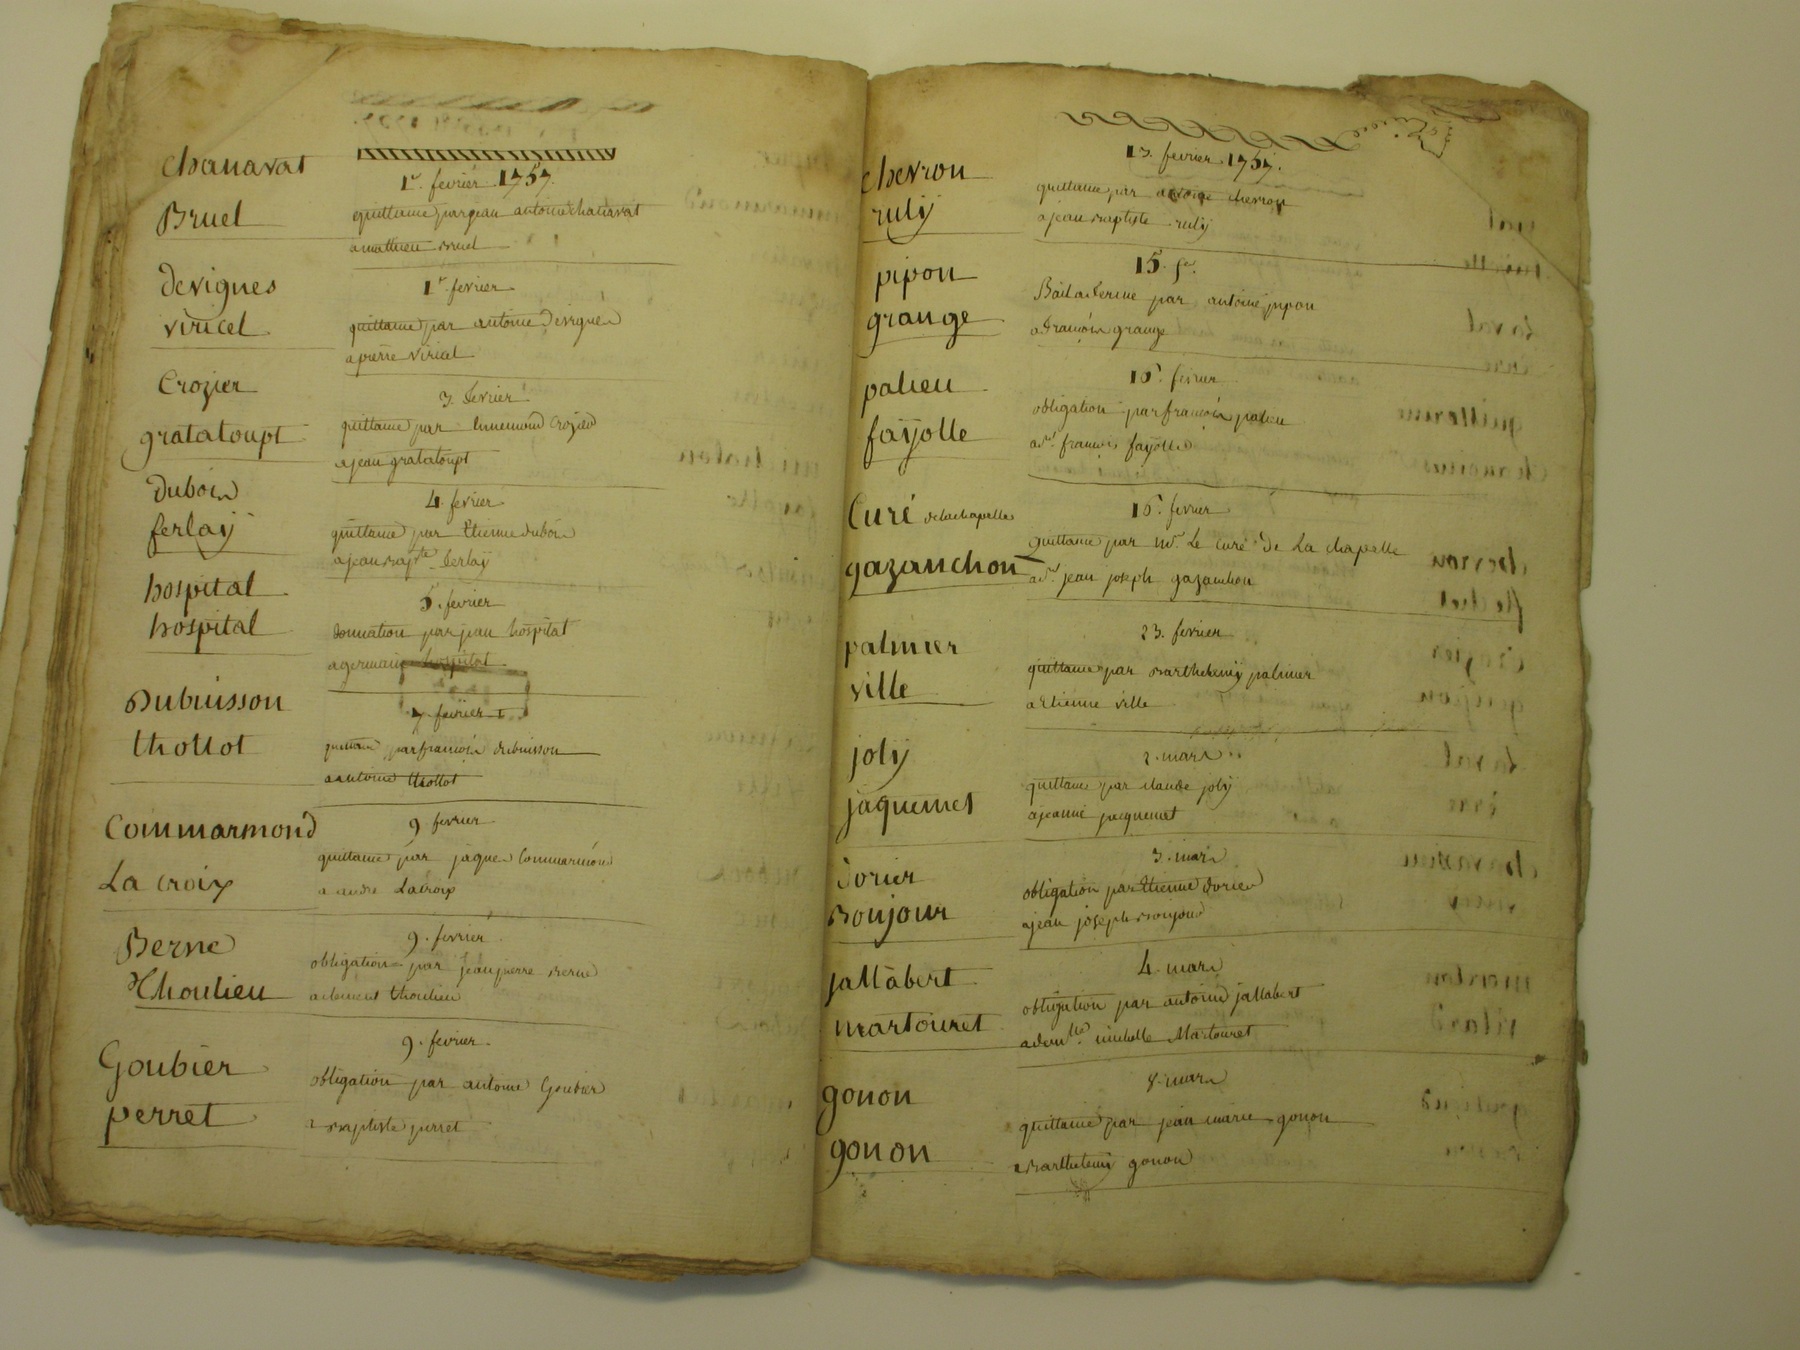 Chanavat
1r. fevrier 1757.
Bruel
quittance par jean antoine chanavat
a mathieu bruel
devignes
1r. fevrier
viricel
quittance par antoine devignes
a pierre viricel
Crozier
3. fevrier
grataloupt
quittance par ennemond Crozier
a jean grataloupt
dubois
4. fevrier
ferlaÿ
quittance par Etienne dubois
a jean bapte. ferlaÿ
hospital
5. fevrier
hospital
donnation par jean hospital
a germain hospital
Dubuisson
7. fevrier
thollot
quittance par francois dubuisson
a antoine thollot
Commarmond
9. fevrier
La croix
quittance par jaques Commarmond
a andre Lacroix
Berne
9. fevrier
Thoulieu
obligation par jean pierre berne
a clement thoulieu
Goubier
9. fevrier.
perret
obligation par antoine Goubier
a baptiste perret
chevron
13. fevrier 1757.
rulÿ
quittance par antoine chevron
a jean baptiste rulÿ
pipon
15. fe.
grange
Bail a ferme par antoine pipon
a francois grange
palieu
16. fevrier
faÿolle
obligation par francois palieu
a sr. francois faÿolle
Curé de la chapelle
16. fevrier
gazanchon
quittance par mr. Le curé de La chapelle
a sr. jean joseph gazanchon
palmier
23. fevrier
ville
quittance par barthelemÿ palmier
a Etienne ville
jolÿ
2. mars
jaquemet
quittance par claude jolÿ
a jeanne jacquemet
dorier
3. mars
Bonjour
obligation par Etienne dorier
a jean joseph bonjour
jallabert
4. mars
martouret
obligation par antoine jallabert
a demlle. michelle Martouret
gonon
8. mars
gonon
quittance par jean marie gonon
a barthelemÿ gonon